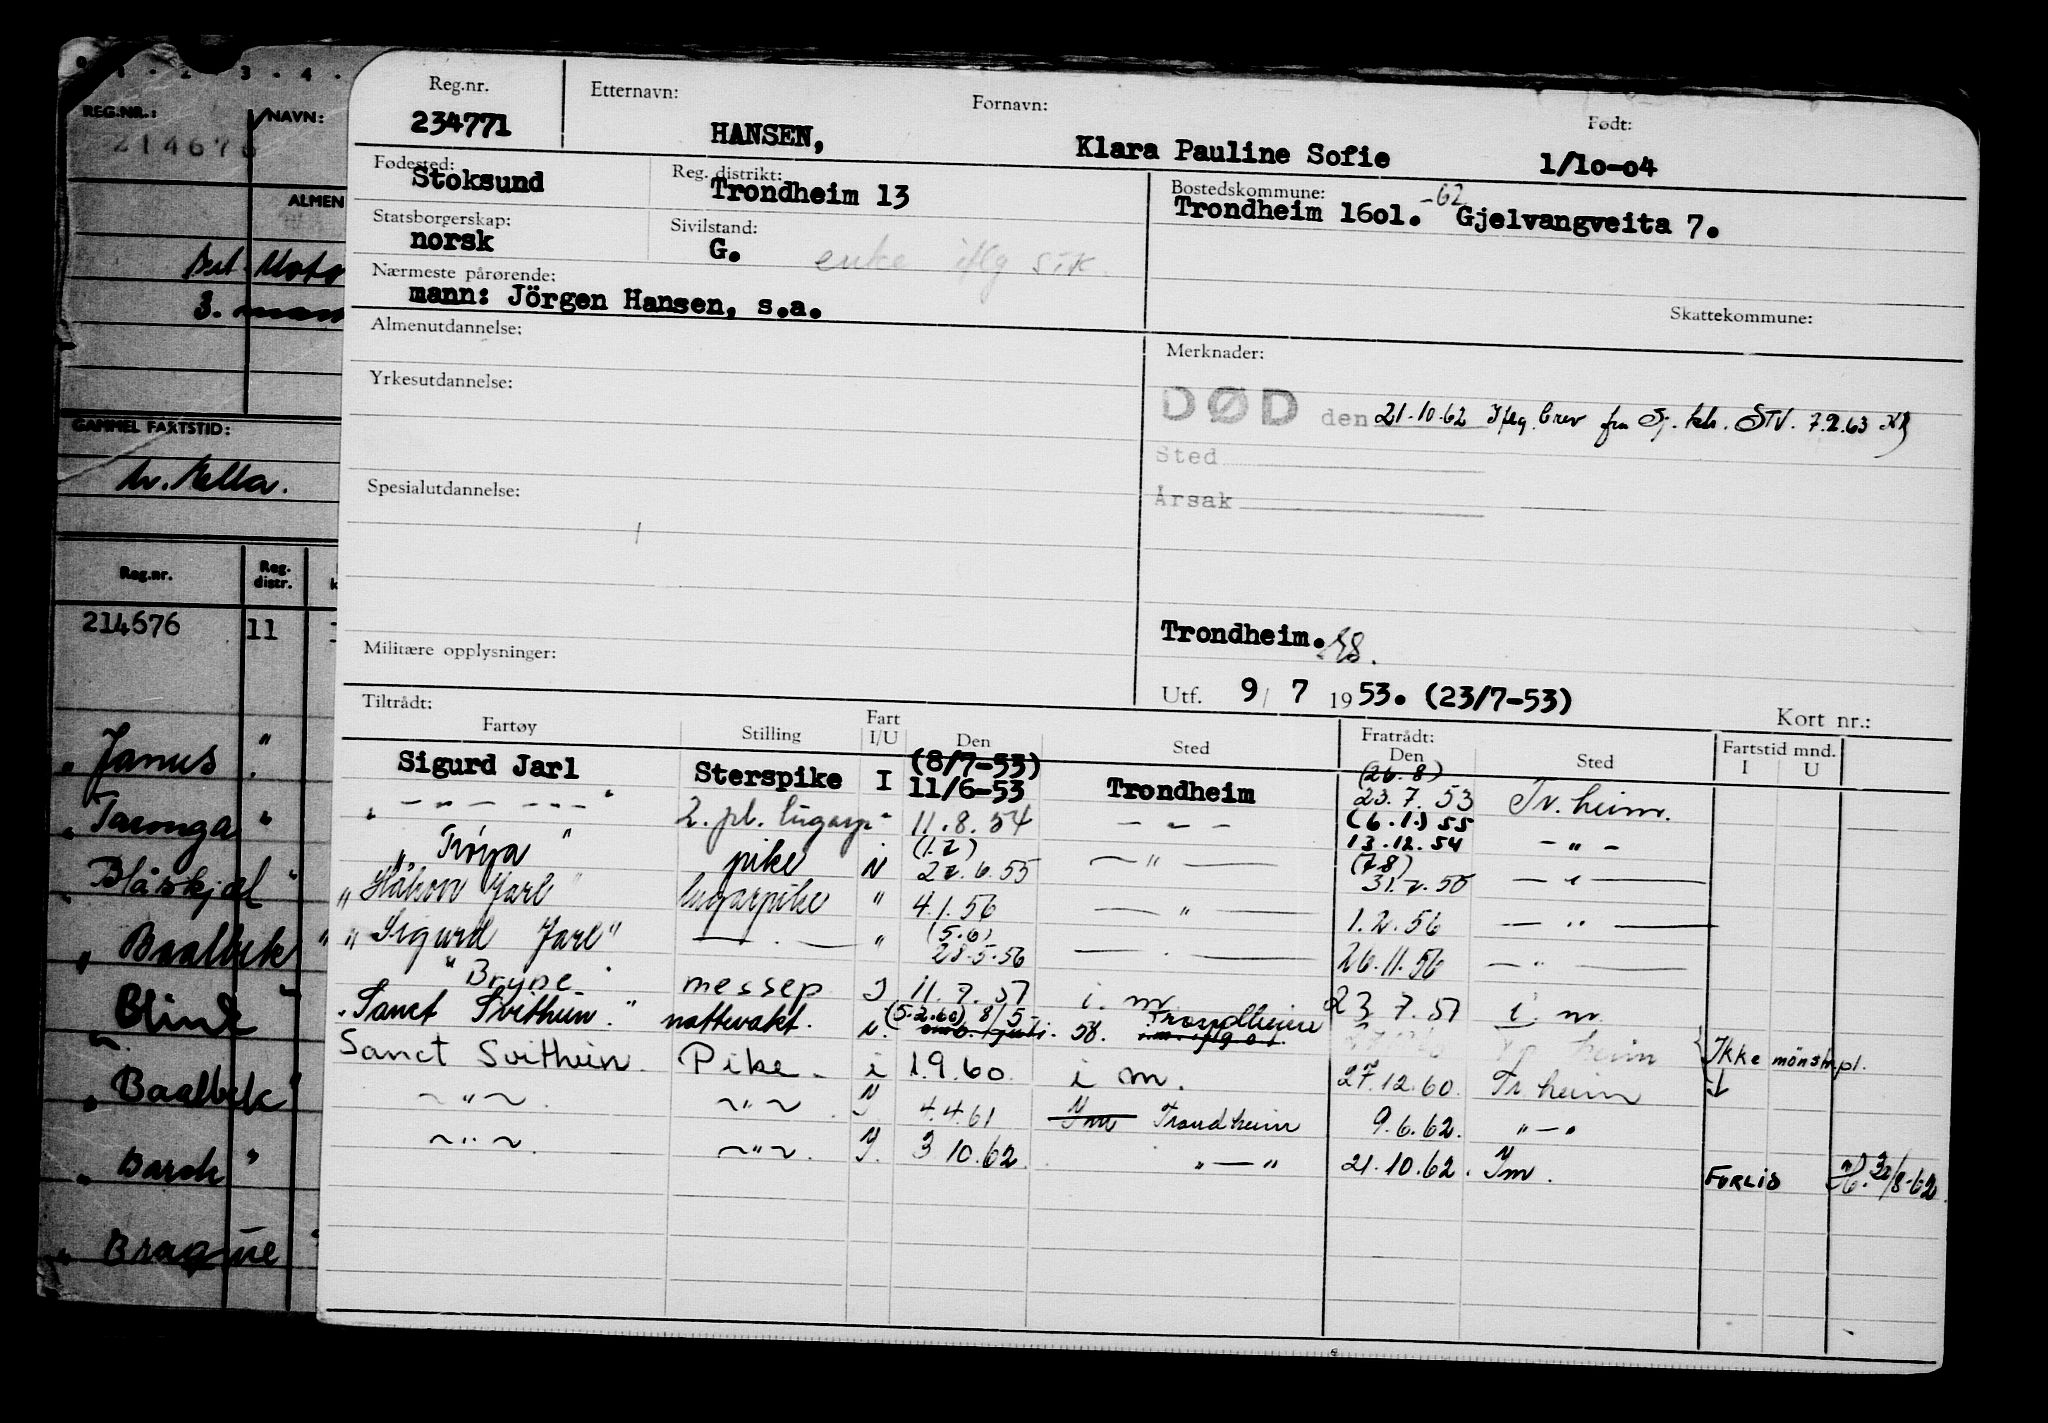 REG.NR.: NAVN:
214676
ALMEN
3.
GAMMEL FARTSTID:
M. Kella.
Reg.nr. Reg. distr.
214676 11
" Janus "
" Taronga "
" Blåskjel "
" Baalbek "
" Blink "
" Baalbek "
" Barsk "
" Braque "
Reg.nr. Etternavn: Fornavn: Født:
234771 HANSEN, Klara Pauline Sofie 1/10-04
Fødested: Reg. distrikt: Bostedskommune:
Stoksund Trondheim 13 Trondheim 1601. -62 Gjelvangveita 7.
Statsborgerskap: Sivilstand:
norsk G. enke iflg sik.
Nærmeste pårørende:
mann: Jörgen Hansen, s.a.
Skattekommune:
Almenutdannelse: Merknader:
Yrkesutdannelse:
DØD den 21.10.62 Iflg. brev fra Sj. ktr. STV. 7.2.63
Sted
Årsak
Spesialutdannelse:
Trondheim.
Militære opplysninger:
Utf. 9/ 7 1953. (23/7-53)
Kort nr.:
Tiltrådt: Fratrådt:
Fartøy Stilling Fart I/U Den Sted Den Sted Fartstid mnd. I U
(8/7-53) (26.8)
Sigurd Jarl Sterspike I 11/6-53 Trondheim 23.7.53 Tr.heim.
(6.1.) 55
" - " - - - - " 2. pl. lugarp " 11.8.54 - " - 13.12.54 - " -
(1.7) (7.8)
" Tröya " pike N 22.6.55 - " - 31.7.55 - " -
" Håkon Jarl " lugarpike " 4.1.56 - " - 1.2.56 - " -
(5.6)
" Sigurd Jarl " - " - " 28.5.56 - " - 26.11.56 - " -
" Bryne " messep I 11.7.57 i. m. 23.7.57 i. m.
" Sanct Svithun " nattevakt. N. (5.2.60) 8/5 58. Trondheim heim
Sanct Svithun. Pike. i 1.9.60. i m. 27.12.60. Tr.heim Ikke mönstr.pl.
~ " ~ ~ " ~ I 4.4.61 Im Trondheim 9.6.62. " - "
~ " ~ ~ " ~ I. 3 10.62 " - " 21.10.62. Im. FORLIS